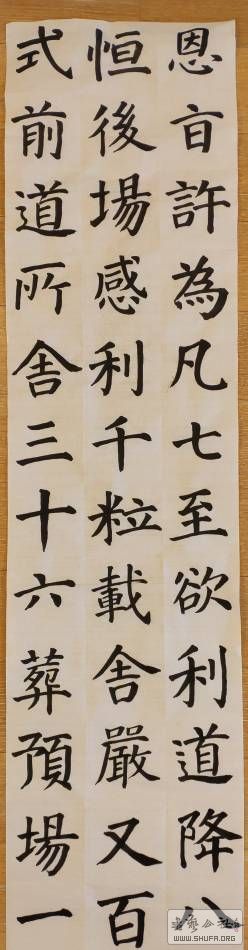 恩旨許為凡七至欲利道降八
恒後場感利千粒載舍嚴又百
式前道所舍三十六葬預場一
WWW.SHUFA.ORG